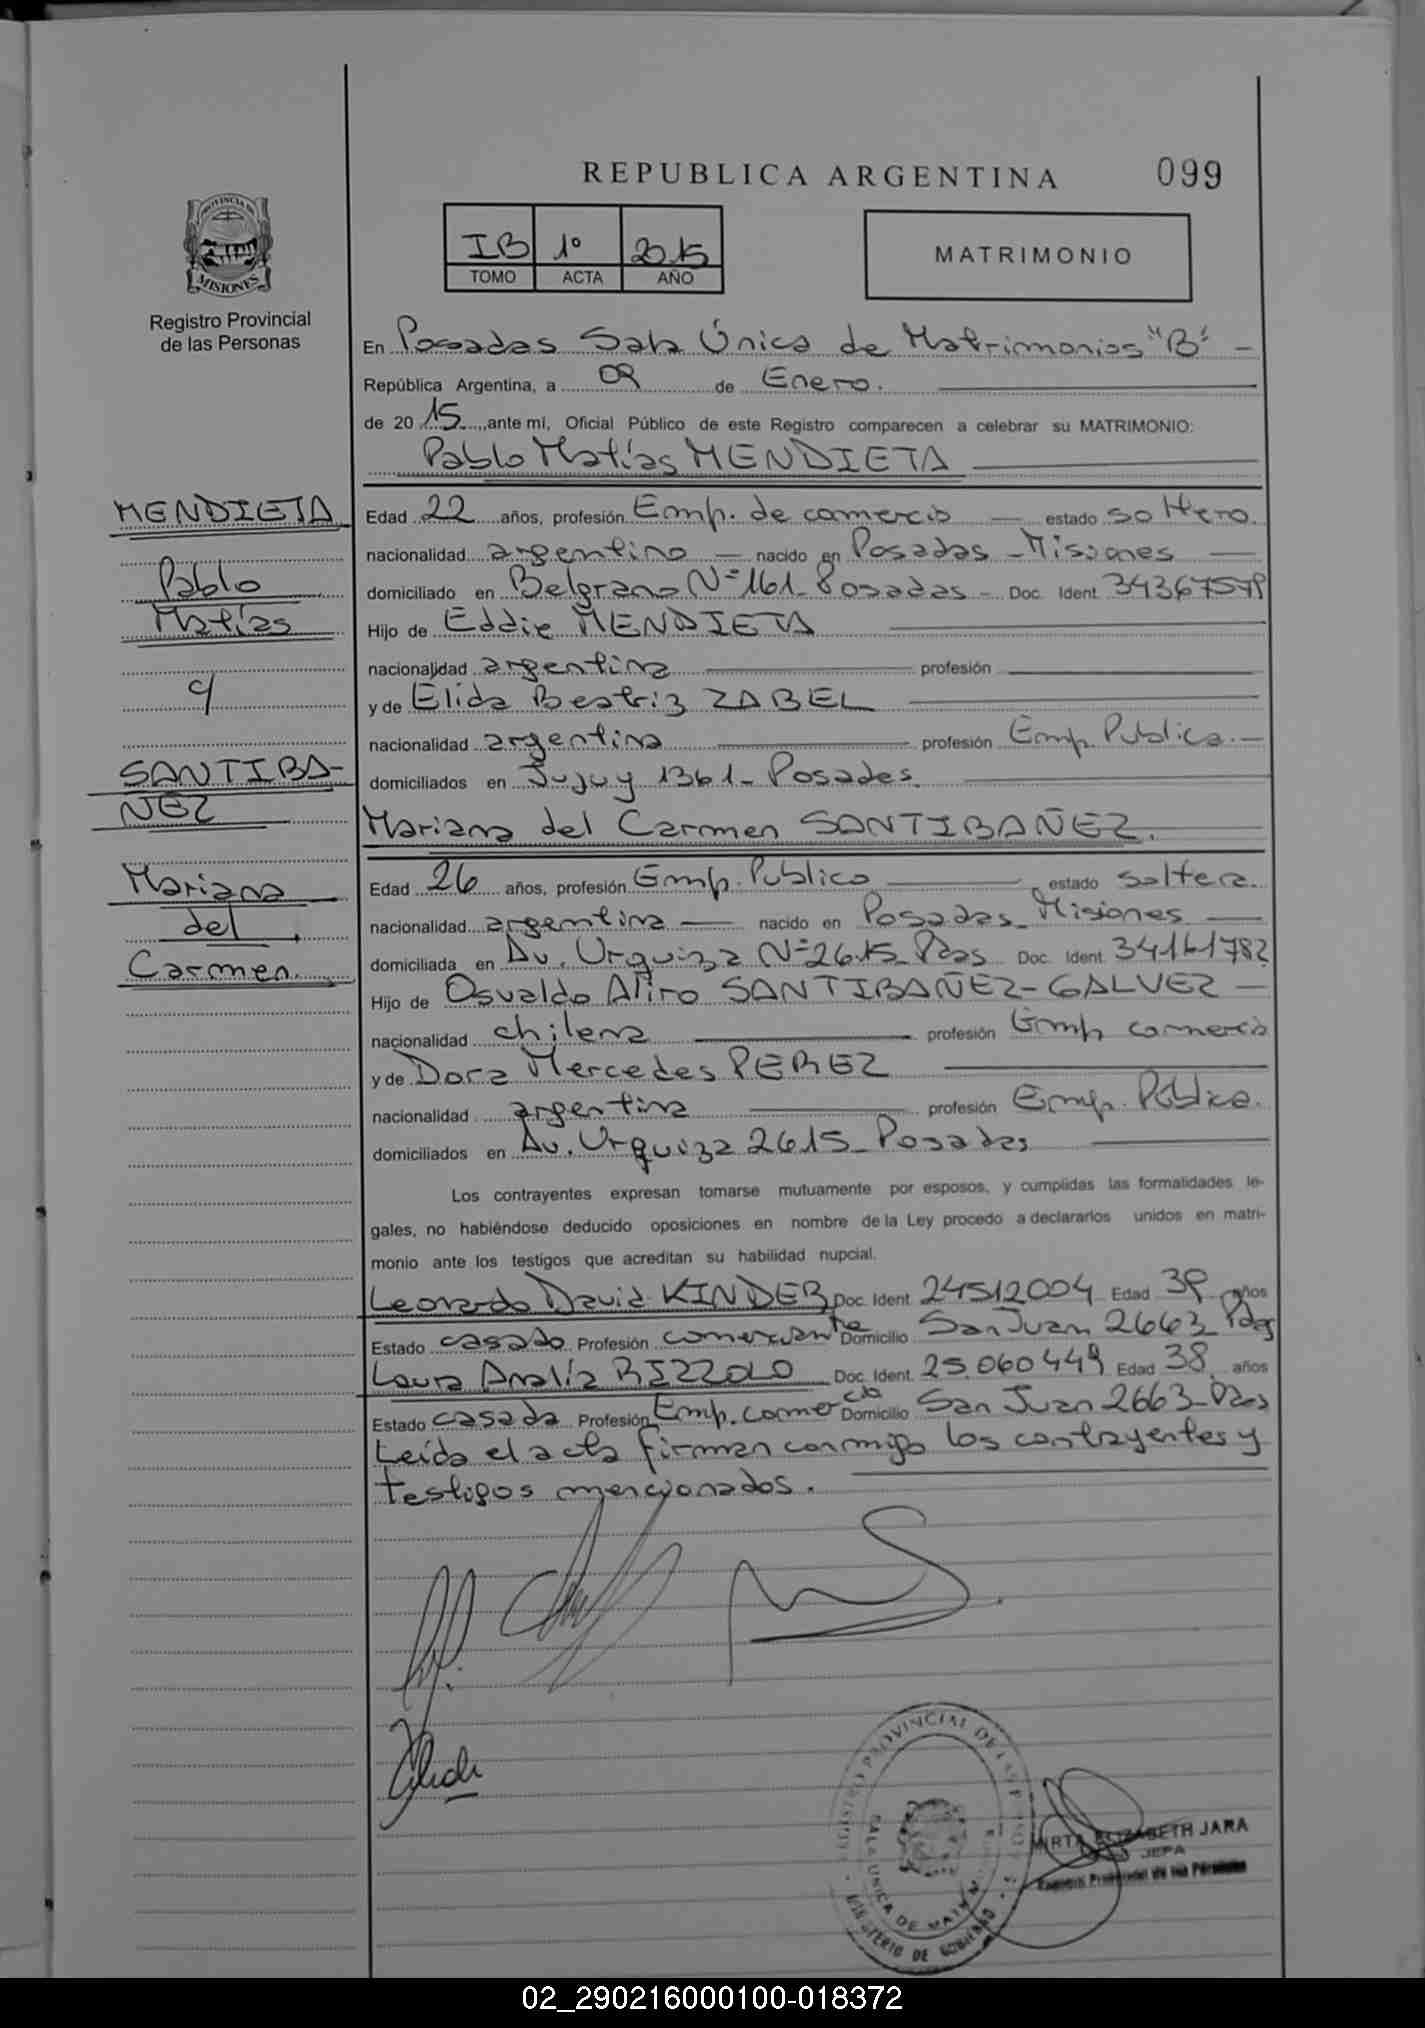 REPUBLICA ARGENTINA 099
PROVINCIA DE
MISIONES
Registro Provincial
de las Personas
IB 1º 2015
TOMO ACTA AÑO
MATRIMONIO
En Posadas Sala Única de Matrimonios "B" -
República Argentina, a 09 de Enero.
de 20 15 ,ante mí, Oficial Público de este Registro comparecen a celebrar su MATRIMONIO:
Pablo Matías MENDIETA
MENDIETA
Pablo
Matías
c/
SANTIBA-
ÑEZ
Mariana
del
Carmen.
Edad 22 años, profesión Emp. de comercio - estado soltero.
nacionalidad argentino - nacido en Posadas - Misiones -
domiciliado en Belgrano Nº 161 - Posadas - Doc. Ident. 34367579
Hijo de Eddie MENDIETA
nacionalidad argentina profesión
y de Elida Beatriz ZABEL
nacionalidad argentina profesión Emp. Publica. -
domiciliados en Jujuy 1361 - Posadas.
Mariana del Carmen SANTIBAÑEZ.
Edad 26 años, profesión Emp. Publico estado soltera.
nacionalidad argentina - nacido en Posadas - Misiones -
domiciliada en Av. Urquiza Nº 2615 - Pdas Doc. Ident. 34161782
Hijo de Osvaldo Aliro SANTIBAÑEZ-GALVEZ -
nacionalidad chilena profesión Emp comercio
y de Dora Mercedes PEREZ
nacionalidad argentina profesión Emp. Publica.
domiciliados en Av. Urquiza 2615 - Posadas
Los contrayentes expresan tomarse mutuamente por esposos, y cumplidas las formalidades le-
gales, no habiéndose deducido oposiciones en nombre de la Ley procedo a declararlos unidos en matri-
monio ante los testigos que acreditan su habilidad nupcial.
Leonardo David KINDER Doc. Ident. 24512004 Edad 39 años
Estado casado Profesión comerciante Domicilio San Juan 2663 - Pdas
Laura Analía RIZZOLO Doc. Ident. 25.060449 Edad 38 años
Estado casada Profesión Emp. comercio Domicilio San Juan 2663 - Pdas
Leída el acta firman conmigo los contrayentes y
testigos mencionados.
REGISTRO PROVINCIAL DE LAS PERSONAS
SALA UNICA DE MATRIMONIOS
MINISTERIO DE GOBIERNO
MIRTA ELIZABETH JARA
JEFA
Registro Provincial de las Personas
02_290216000100-018372